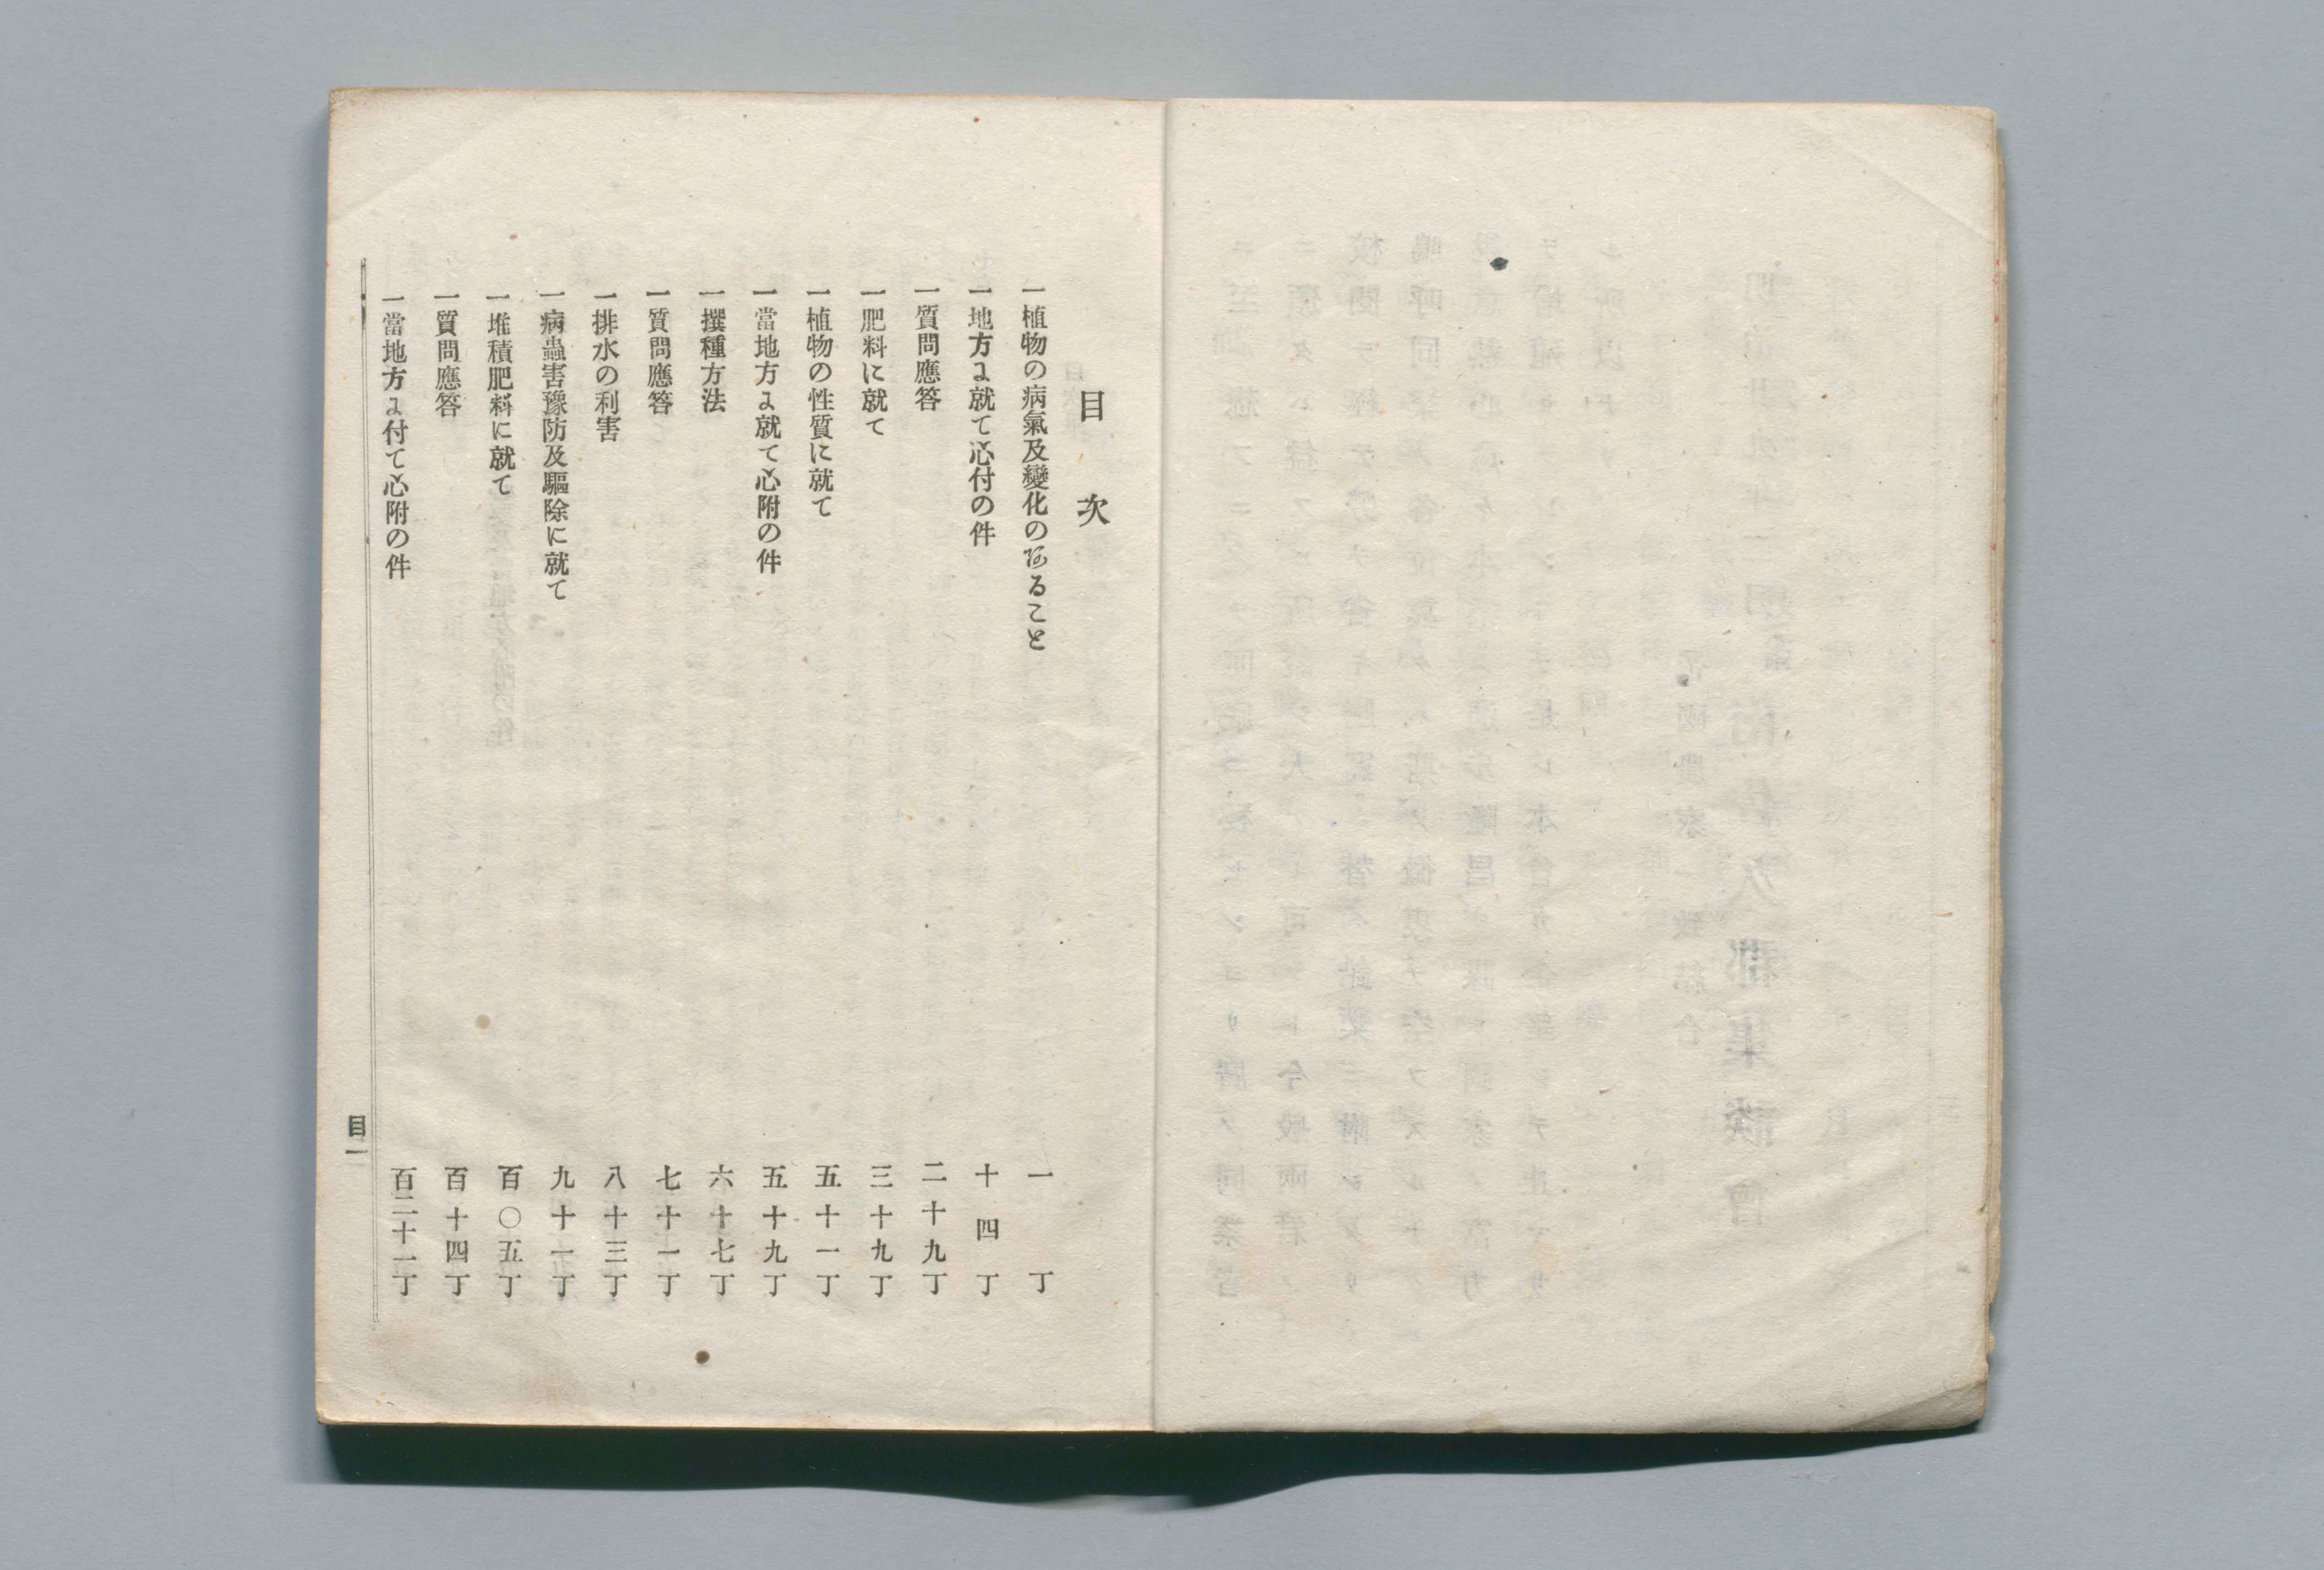 目次
一植物の病氣及變化のあること 一丁
一地方に就て心付の件 十四丁
一質問應答 二十九丁
一肥料に就て 三十九丁
一植物の性質に就て 五十一丁
一當地方に就て心附の件 五十九丁
一撰種方法 六十七丁
一質問應答 七十一丁
一排水の利害 八十三丁
一病蟲害豫防及驅除に就て 九十一丁
一堆積肥料に就て 百〇五丁
一質問應答 百十四丁
一當地方に付て心附の件 百二十一丁
目一